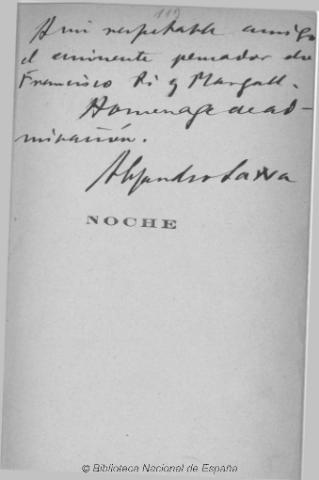 A mi respetable amigo
el eminente pensador don
Francisco Pi y Margall.
Homenage de ad-
miración.
Alejandro Sawa
NOCHE
© Biblioteca Nacional de España